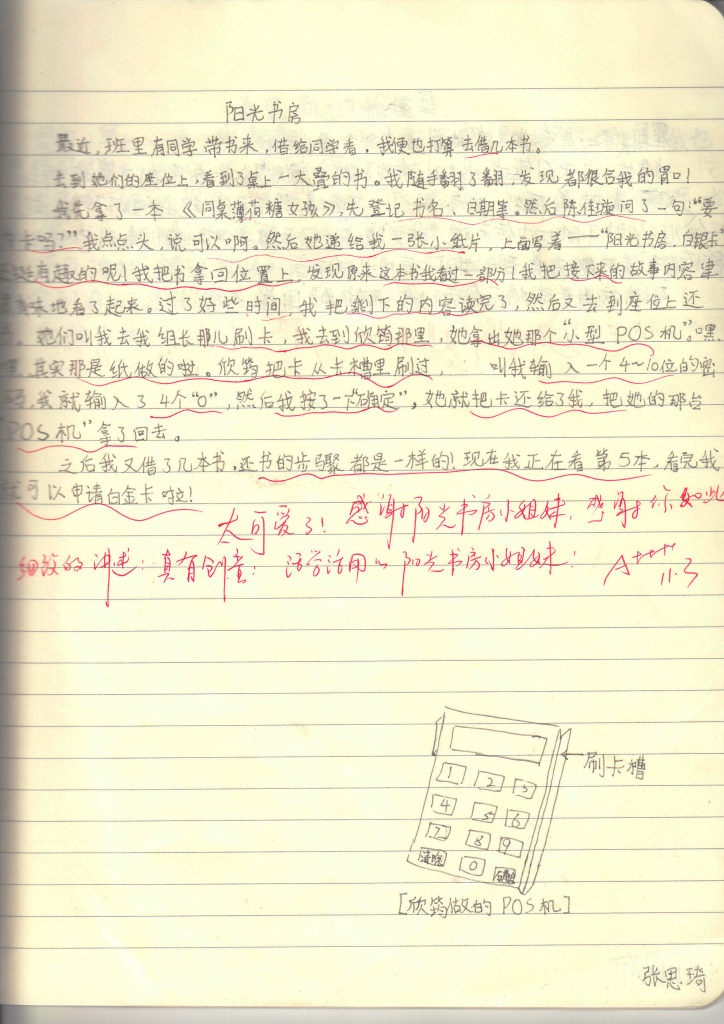 阳光书房
最近,班里有同学带书来,借给同学看,我便也打算去借几本书。
去到她们的座位上,看到了桌上一大叠的书。我随手翻了翻,发现都很合我的胃口!
我先拿了一本《同桌薄荷糖女孩》,先登记书名、日期等。然后陈佳璇问了一句:“要
卡吗?”我点点头,说可以啊。然后她递给我一张小纸片,上面写着——“阳光书房,白银卡”
有趣的呢!我把书拿回位置上,发现原来这本书我看过一部分!我把接下来的故事内容津
味地看了起来。过了好些时间,我把剩下的内容读完了,然后又去到座位上还
。她们叫我去我组长那儿刷卡,我去到欣筠那里,她拿出她那个“小型POS机”。嘿
嘿,其实那是纸做的啦。欣筠把卡从卡槽里刷过, 叫我输入一个4~10位的密
码,我就输入了4个“0”,然后我按了一下“确定”,她就把卡还给了我,把她的那台
“POS机”拿了回去。
之后我又借了几本书,还书的步骤都是一样的!现在我正在看第5本,看完我
就可以申请白金卡啦!
太可爱了!感谢阳光书房小姐妹,感谢你如此
细致的讲述!真有创意!活学活用的阳光书房小姐妹! A++++
11.3
刷卡槽
1 2 3
4 5 6
7 8 9
清除 0 确定
[欣筠做的POS机]
张思琦